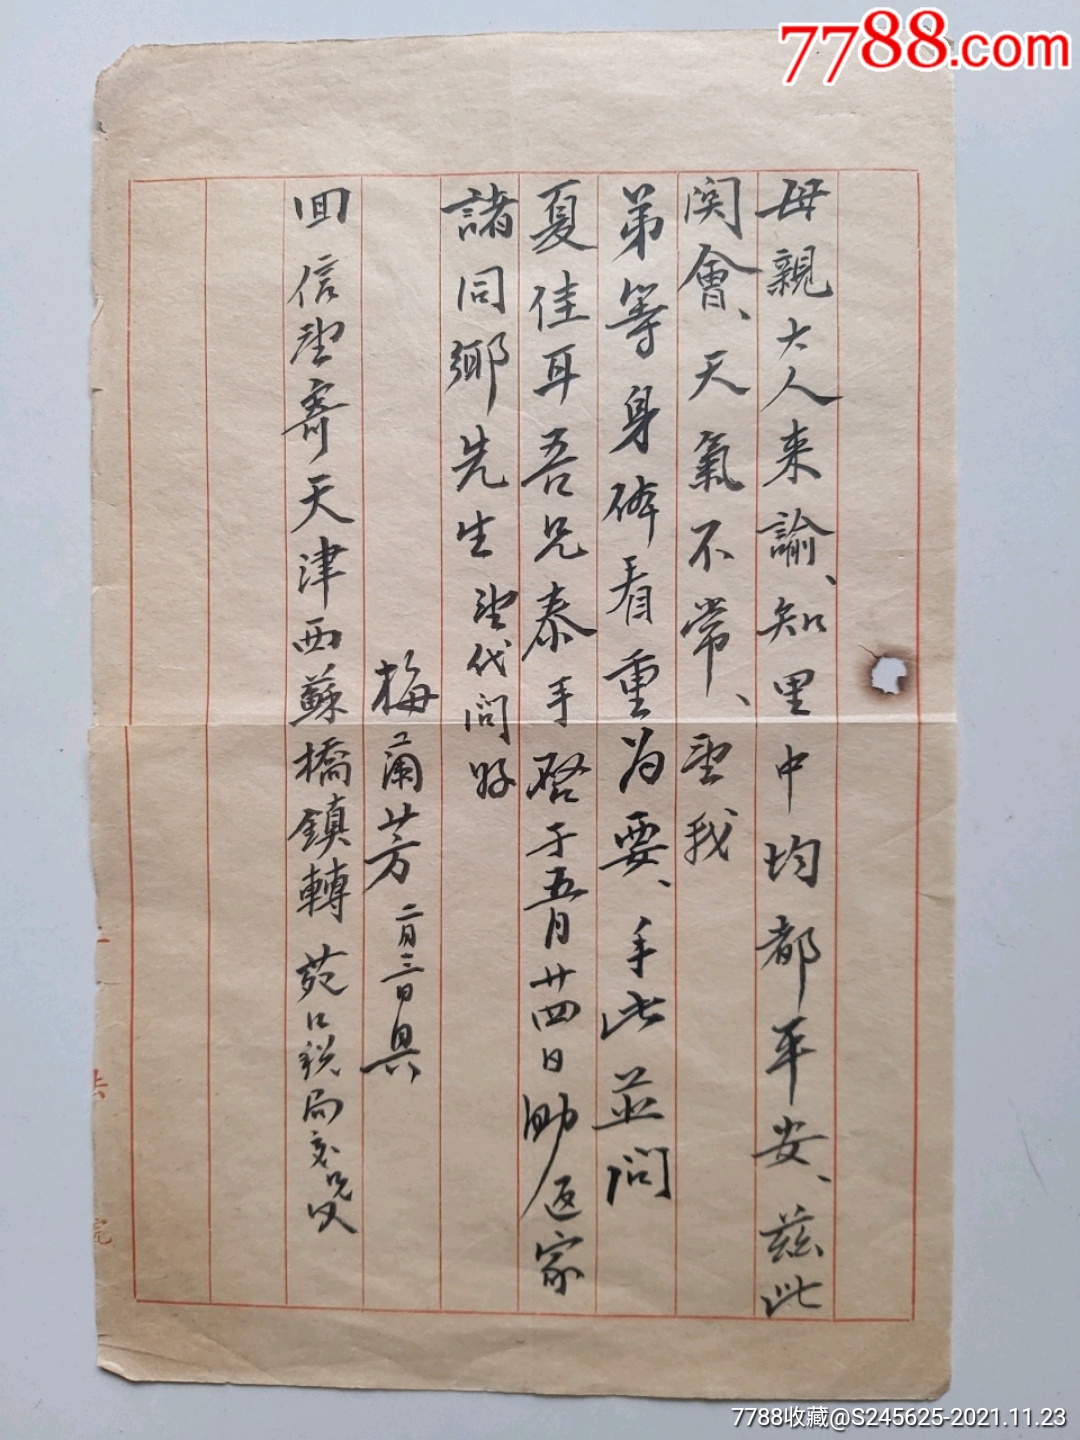 7788.com
母親大人来諭、知里中均都平安、兹此
関會、天氣不常、望我
弟等身体看重为要、手此並問
夏佳耳吾兄泰手啓于五月廿四日助返家
諸同鄉先生望代問好
梅蘭芳 二月三日具
回信望寄天津西蘇橋鎮轉苑口税局交
法
院
7788收藏@S245625-2021.11.23